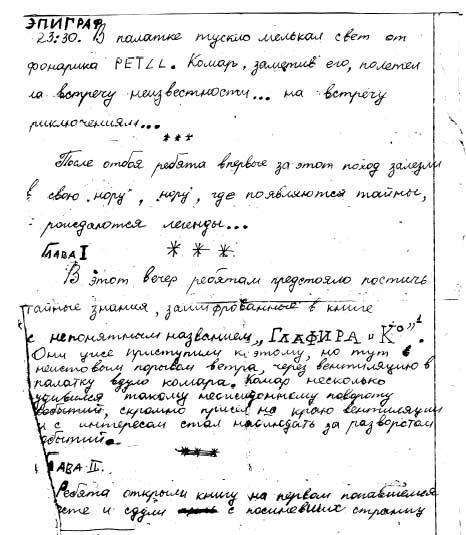 ЭПИГРАФ
23:30. В палатке тускло мелькал свет от
фонарика PETZL. Комар, заметив его, полетел
на встречу неизвестности... на встречу
риключениям...
***
После отбоя ребята впервые за этот поход залезли
в свою „нору", нору, где появляются тайны,
роисдаются легенды...
ГЛАВА I * * *
В этот вечер ребятам предстояло постичь
тайные знания, зашифрованные в книге
с непонятным названием „ГЛАФИРА „К°"¹.
Они уже приступили к этому, но тут в
неистовом порывом ветра, через вентиляцию в
палатку вдуло комара. Комар несколько
удивился такому неожиданному повороту
событий, скромно присел на краю вентиляции
и с интересом стал наблюдать за разворотом
обытий.
***
ГЛАВА II.
Ребята открыли книгу на первом попавшемся
сте и сдули с посиневших страниц